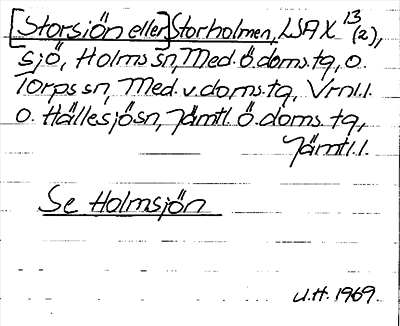 [Storsjön eller] Storholmen, LSA X 13 (2),
sjö, Holms sn, Med. ö. doms. tg, o.
Torps sn, Med. v. doms. tg, Vrnl. l.
o. Hällesjö sn, Jämtl. Ö. doms. tg,
Jämtl. l.
Se Holmsjön
U.H. 1969